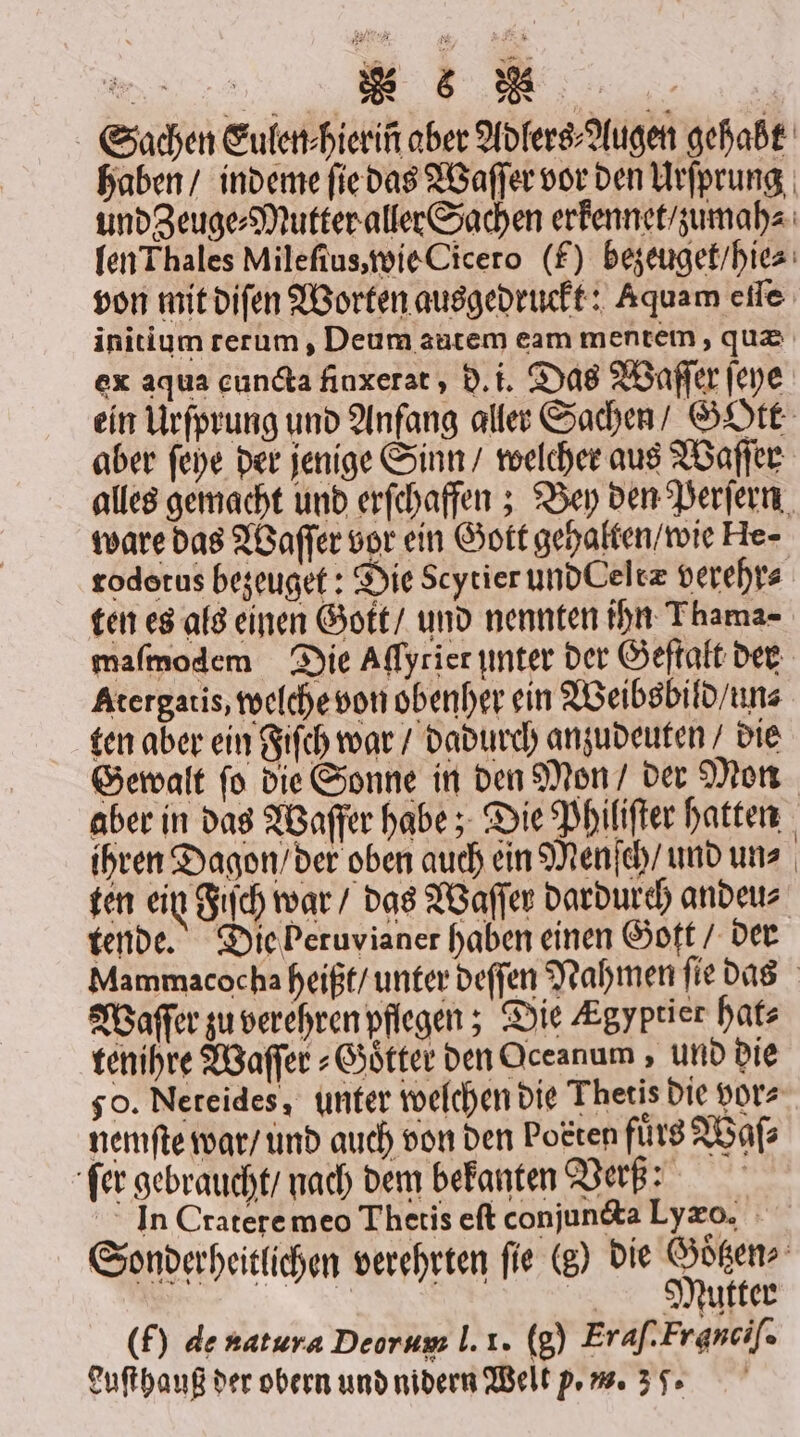 ❧ 6 ❧
Sachen Eulen-hieriñ aber Adlers-Augen gehabt
haben / indeme ſie das Waſſer vor den Urſprung
und Zeuge-Mutter aller Sachen erkennet/zumah-
len Thales Mileſius, wie Cicero (f) bezeuget/hie-
von mit diſen Worten ausgedruckt: Aquam eſſe
initium rerum, Deum autem eam mentem, quæ
ex aqua cuncta finxerat, d.i. Das Waſſer ſeye
ein Urſprung und Anfang aller Sachen / GOtt
aber ſeye der jenige Sinn / welcher aus Waſſer
alles gemacht und erſchaffen ; Bey den Perſern
ware das Waſſer vor ein Gott gehalten/wie He-
rodotus bezeuget : Die Scytier und Celtæ verehr-
ten es als einen Gott / und nennten ihn Thama-
maſmodem Die Aſſyrier unter der Geſtalt der
Atergatis, welche von obenher ein Weibsbild/un-
ten aber ein Fiſch war / dadurch anzudeuten / die
Gewalt ſo die Sonne in den Mon / der Mon
aber in das Waſſer habe ; Die Philiſter hatten
ihren Dagon/der oben auch ein Menſch/ und un-
ten ein Fiſch war / das Waſſer dardurch andeu-
tende. Die Peruvianer haben einen Gott / der
Mammacocha heißt/ unter deſſen Nahmen ſie das
Waſſer zu verehren pflegen ; Die Ægyptier hat-
tenihre Waſſer-Götter den Oceanum, und die
50. Nereides, unter welchen die Thetis die vor-
nemſte war/ und auch von den Poëten fürs Waſ-
ſer gebraucht/ nach dem bekanten Verß:
In Cratere meo Thetis eſt conjuncta Lyæo.
Sonderheitlichen verehrten ſie (g) die Götzen-
Mutter
(f) de natura Deorum l. 1. (g) Eraſ. Franciſ.
Luſthauß der obern und nidern Welt p. m. 35.